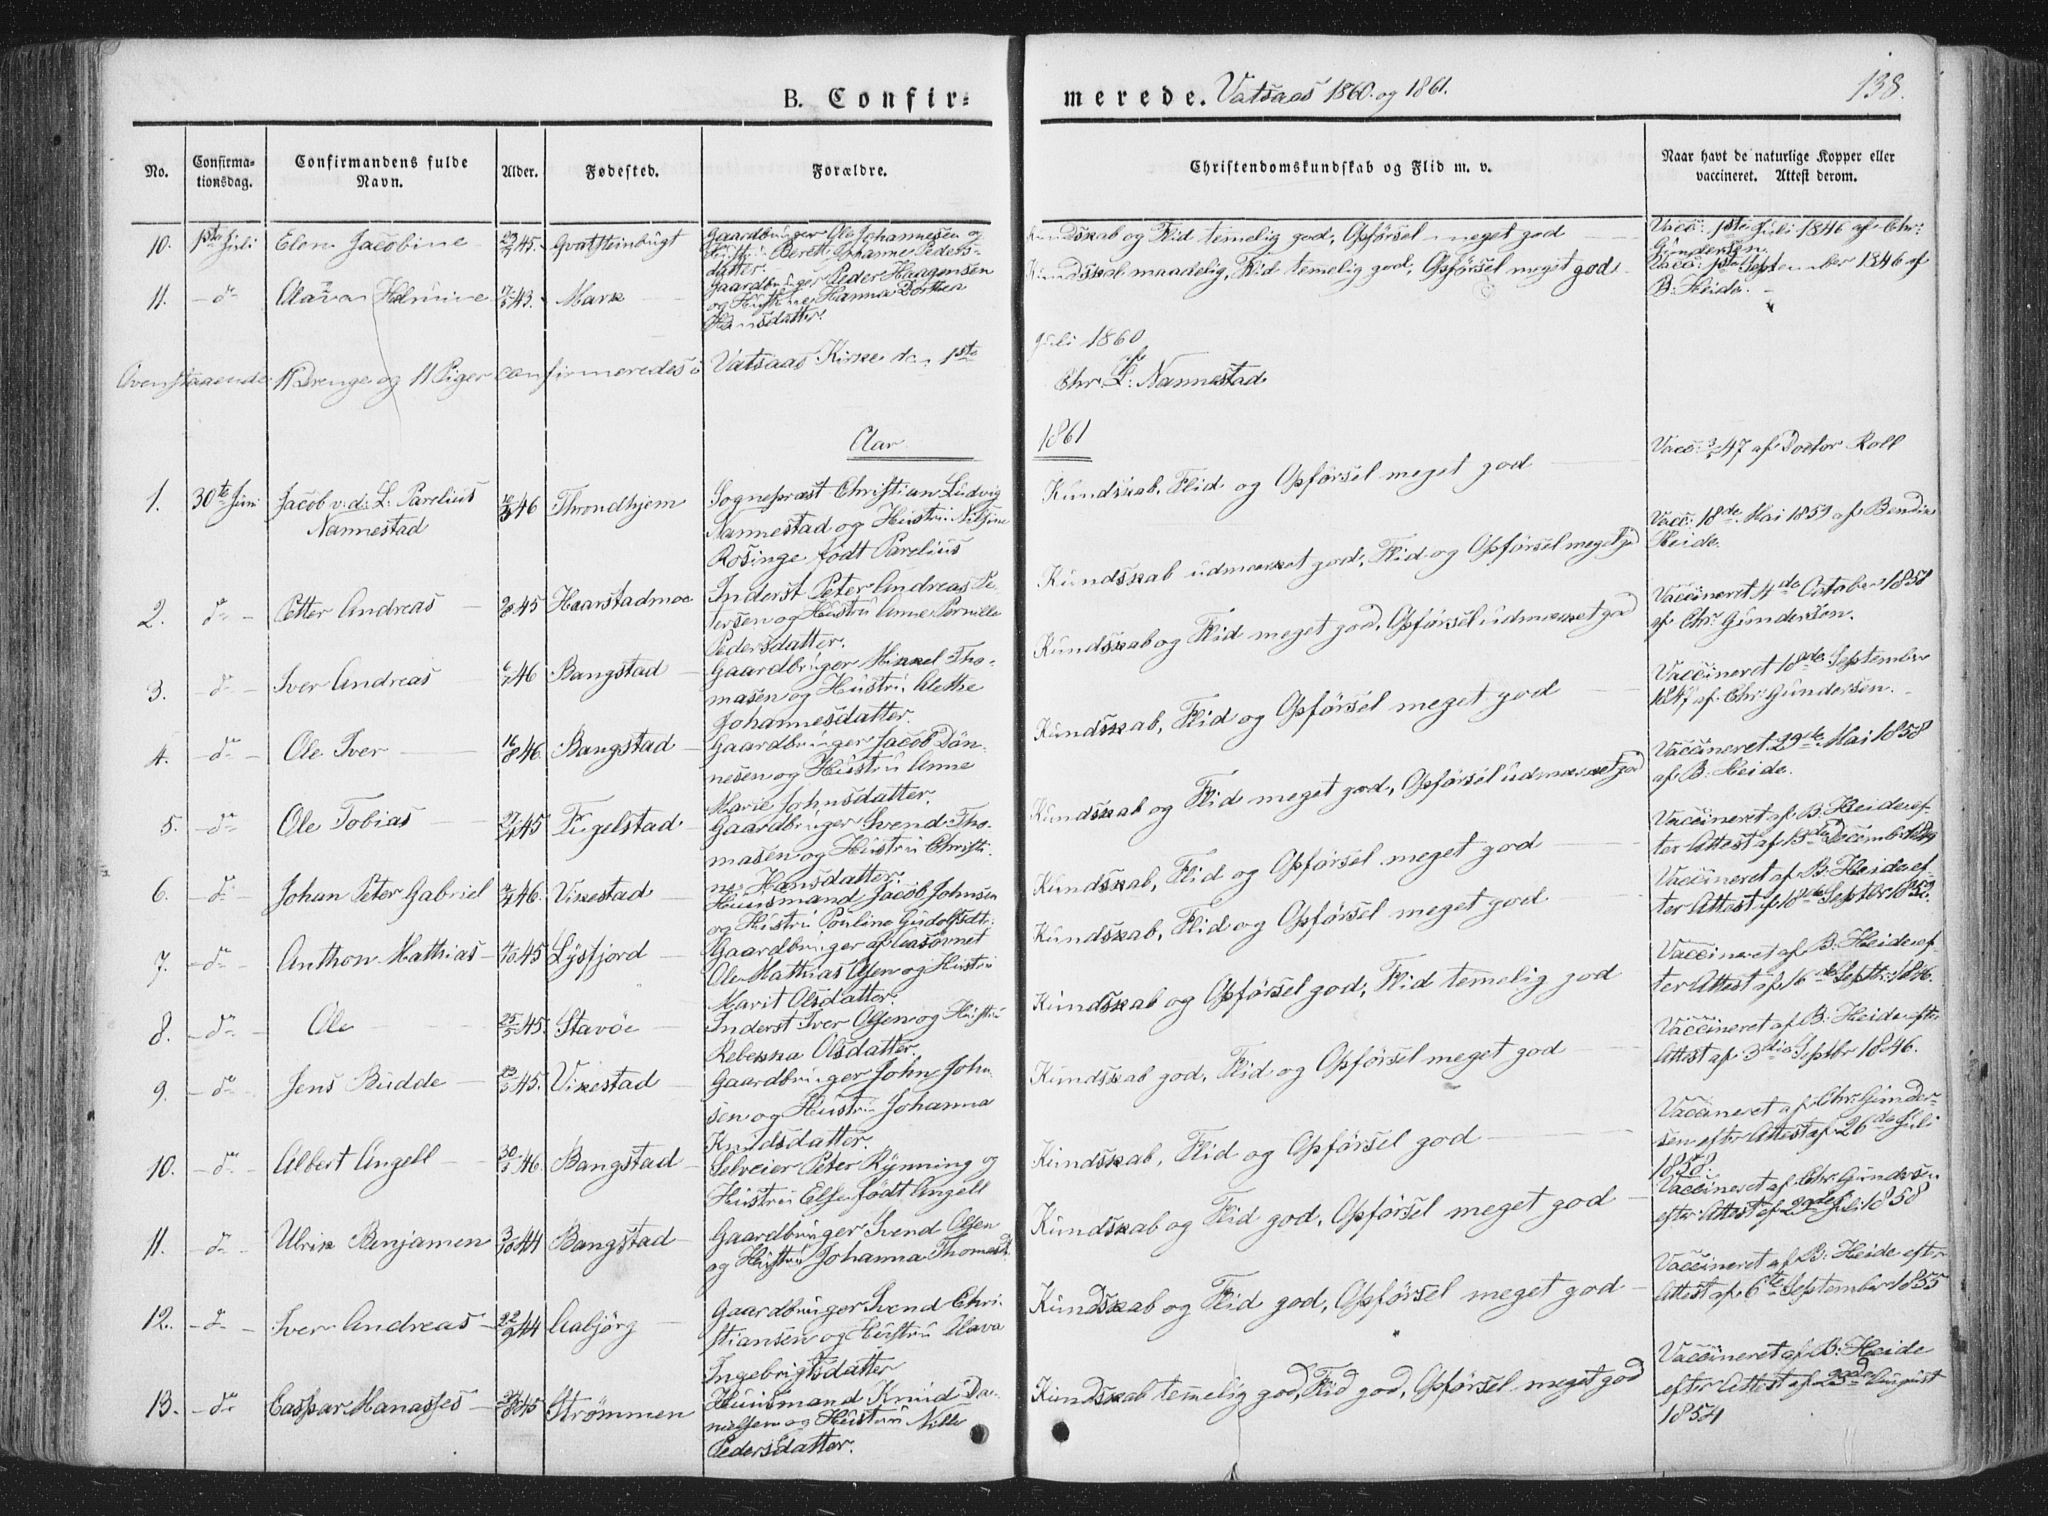 B. Confir-
merede. Vatsaas 1860. og 1861.
138.
No.
Confirma-
tionsdag.
Confirmandens fulde
Navn.
Alder.
Fødested.
Forældre.
Christendomskundskab og Flid m. v.
Naar havt de naturlige Kopper eller
vaccineret. Attest derom.
10. 1ste Juli Elen Jacobine 45. Qvatsteinbugt
Gaardbruger Ole Johannesen og
Hustru Bereth Johanne Peders-
datter.
Kundskab og Flid temelig god, Opførsel meget god
Vacc: 1ste Juli 1846 af Chr:
Gundersen.
11. do Olava Helmine 43. Mark
Gaardbruger Peder Haagensen
og Hustru Hanna Dorthea
Hansdatter.
Kundskab maadelig, Flid temelig god, Opførsel meget god
Vacc: 1ste September 1846 af
B. Heide.
Ovenstaaende 11 Drenge og 11 Piger confirmeredes i Vatsaas Kirke den 1ste
Juli 1860
Chr. L: Nannestad
Aar
1861
1. 30te Juni Jacob v: d: L: Parelius
Nannestad
46 Throndhjem
Sognepræst Christian Ludvig
Nannestad og Hustru Nilsine
Rosinge født Parelius
Kundskab, Flid og Opførsel meget god
Vacc: 47 af Doctor Roll
2. do Petter Andreas 45 Haarstadmoe
Inderst Peter Andreas Pe-
tersen og Hustru Anne Pernille
Pedersdatter.
Kundskab udmærket god, Flid og Opførsel meget god
Vacc: 18de Mai 1859 af
Heide.
3. do Iver Andreas 46 Bangstad
Gaardbruger Mikkel Tho-
masen og Hustru Alethe
Johannesdatter.
Kundskab og Flid meget god, Opførsel udmærket god
Vaccineret 4de October 1858
af Chr. Gundersen.
4. do Ole Iver 16/8 46. Bangstad
Gaardbruger Jacob Døn-
nesen og Hustru Anne
Marie Johnsdatter.
Kundskab, Flid og Opførsel meget god
Vaccineret 18de September
1847 af Chr. Gundersen.
5. do Ole Tobias 45 Fugelstad
Gaardbruger Svend Tho-
masen og Hustru Christi-
ne Hansdatter.
Kundskab og Flid meget god, Opførsel udmærket god
Vaccineret 29de Mai 1858
af B. Heide.
6. do Johan Peter Gabriel 46. Vikestad
Huusmand Jacob Johnsen
og Hustru Pouline
Kundskab, Flid og Opførsel meget god
Vaccineret af B. Heide ef-
ter Attest af 13de December
7. do Anthon Mathias 45 Lysfjord
Gaardbruger af Aasovnet
Ole Mathias Olsen og Hustru
Marit Olsdatter.
Kundskab, Flid og Opførsel meget god
Vaccineret af B. Heide ef-
ter Attest af 18de Septbr
8. do Ole 45 Stavøe
Inderst Iver Olsen og Hustru
Rebekka Olsdatter.
Kundskab og Opførsel god, Flid temelig god
Vaccineret af B. Heide ef-
ter Attest af 16de Septbr: 1846.
9. do Jens Budde 45. Vikestad
Gaardbruger John John-
sen og Hustru Johanna
Knudsdatter.
Kundskab god, Flid og Opførsel meget god
Vaccineret af B. Heide efter
Attest af 3die Septbr 1846.
10. do Albert Angell 46 Bangstad
Selveier Peter Rynning og
Hustru Else født Angell
Kundskab, Flid og Opførsel god
Vaccineret af Chr. Gunder-
sen efter Attest af 26de Juli
1858.
11. do Ulrik Benjamen 44 Bangstad
Gaardbruger Svend Olsen
og Hustru Johanna Thomasd.
Kundskab og Flid god, Opførsel meget god
Vaccineret af Chr. Gunders.
efter Attest af 29de Juli 1858
12. do Iver Andreas 22/9 44 Aabjörg
Gaardbruger Svend Chri-
stiansen og Hustru Olava
Ingebrigtsdatter
Kundskab og Flid god, Opførsel meget god
Vaccineret af B. Heide efter
Attest af 6te September 1855
13. do Caspar Manasses 45 Strömmen
Huusmand Knud Da-
nielsen og Hustru Nille
Pedersdatter.
Kundskab temelig god, Flid god, Opførsel meget god
Vaccineret af B. Heide
efter Attest af 23de August
1854